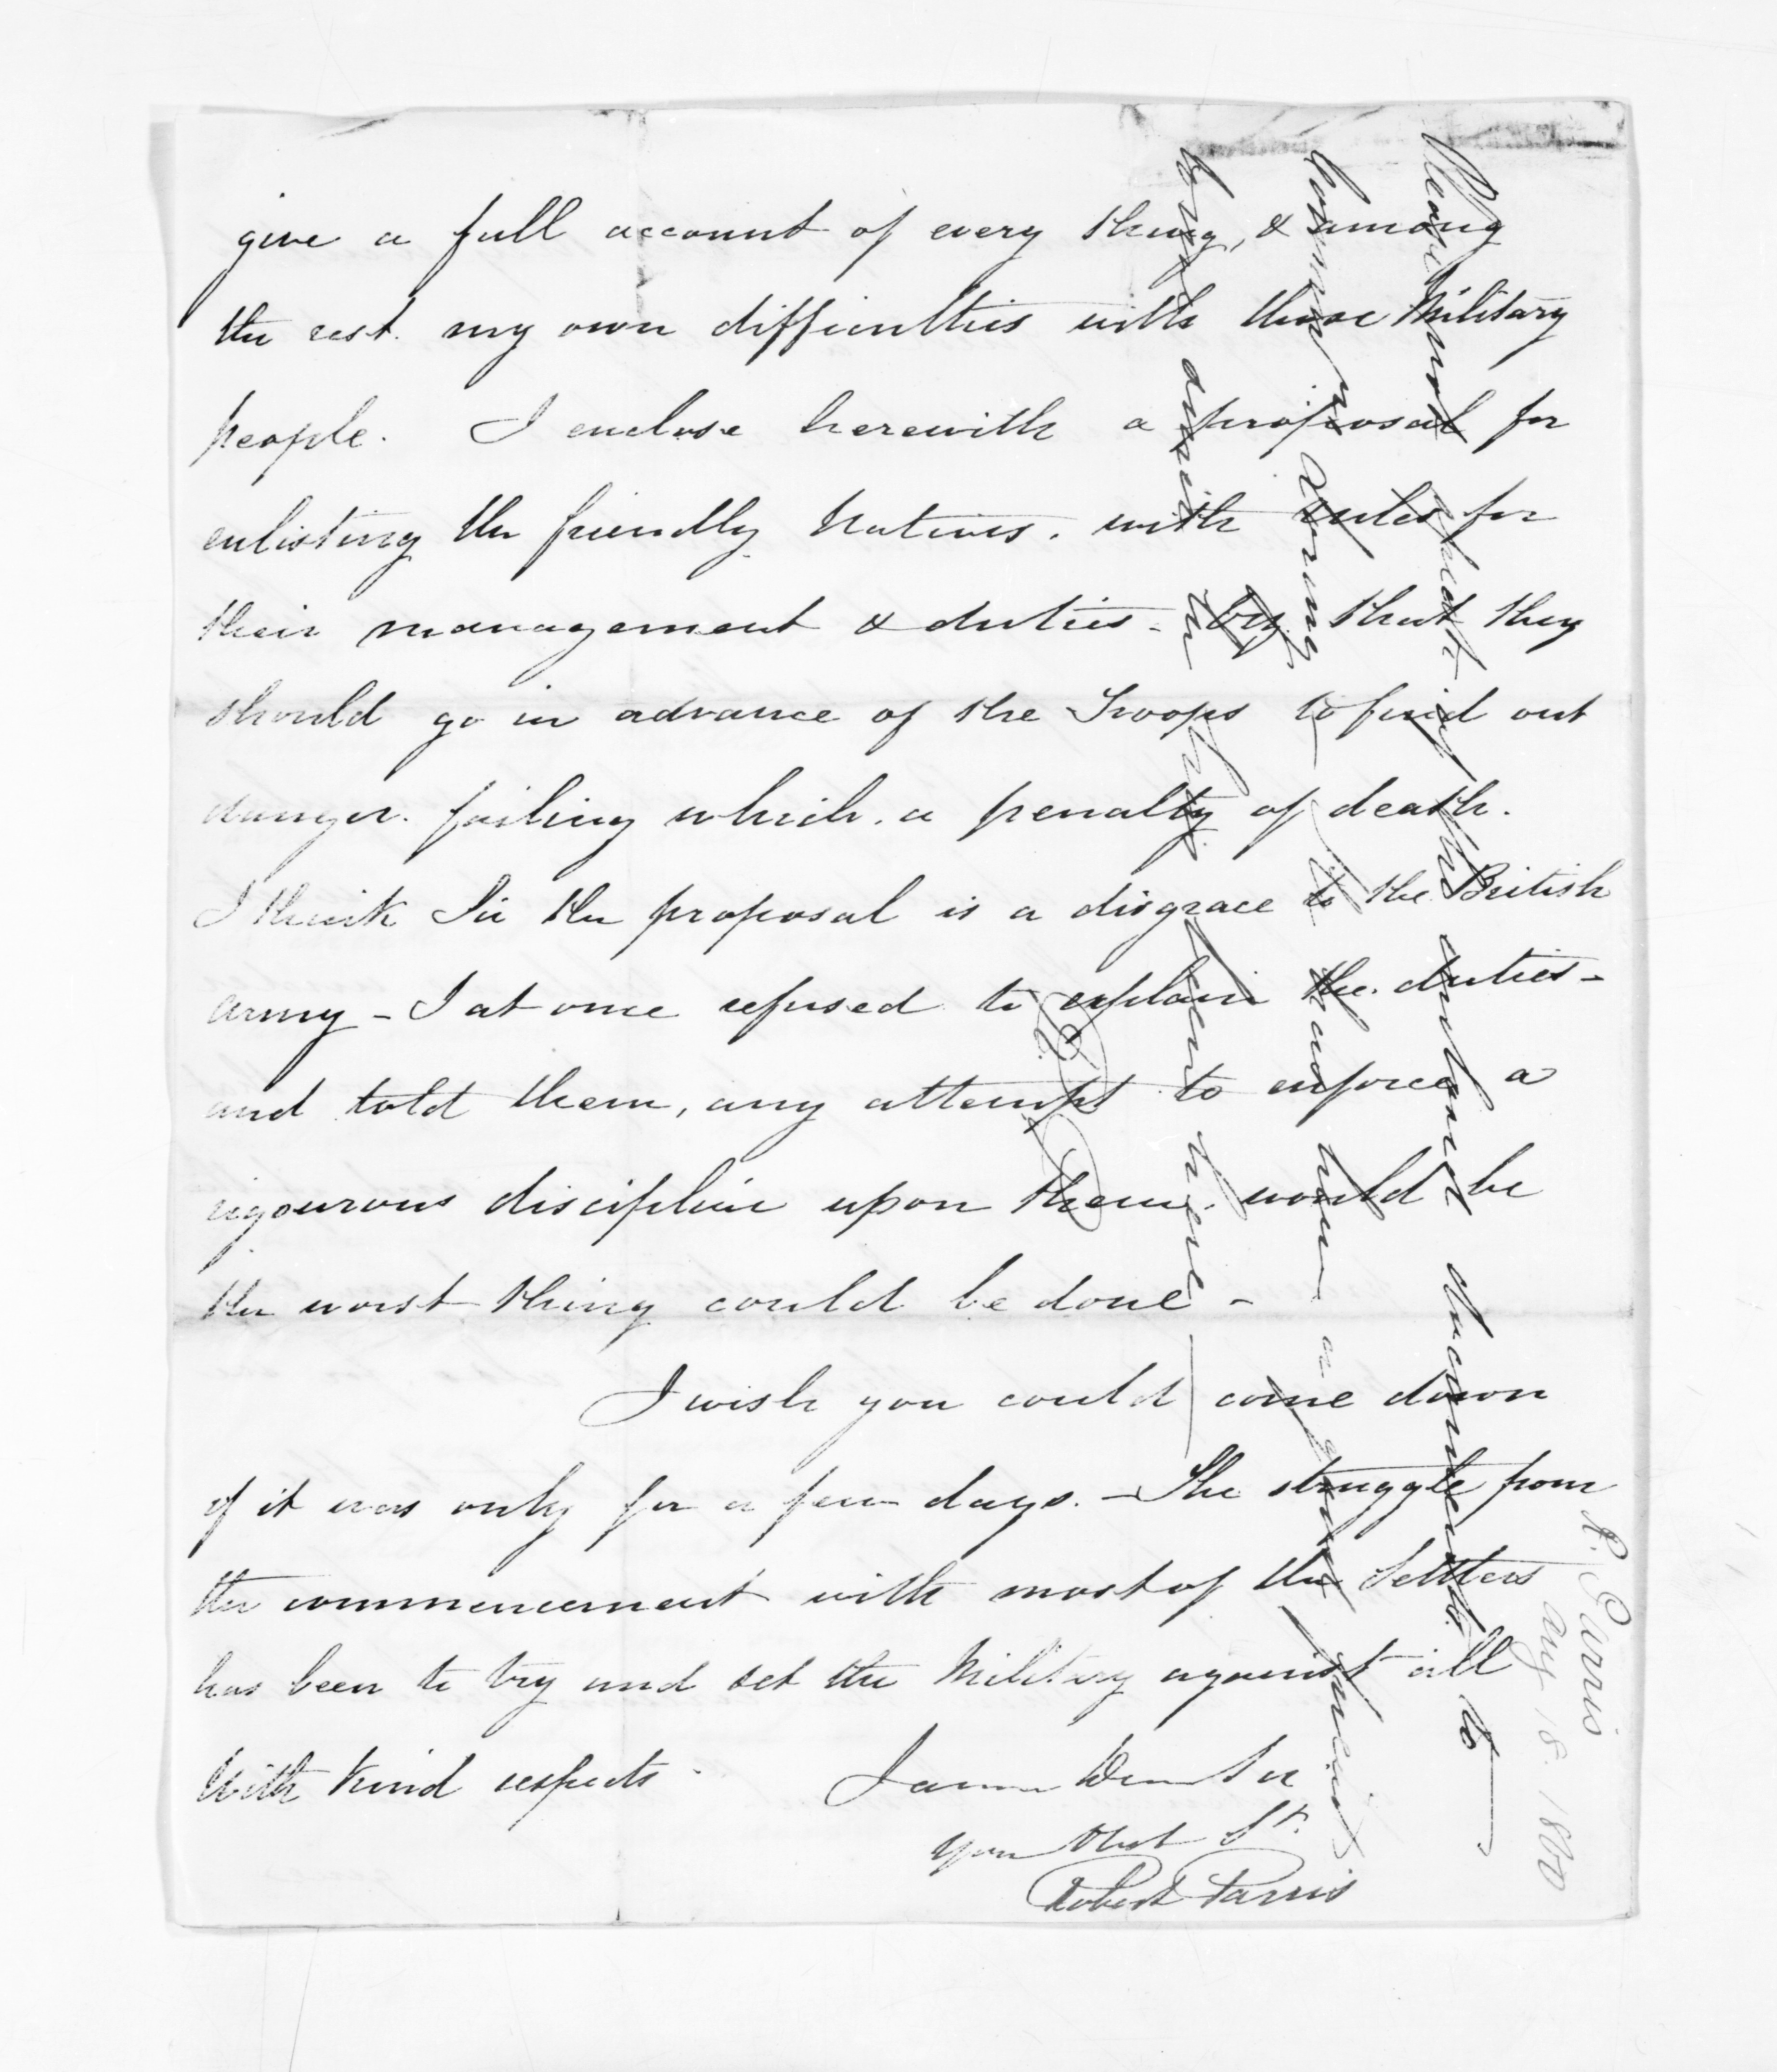 give a full account of every thing, & among
the rest. my own difficulties with these Military
people. I enclose herewith a proposal for
enlisting the friendly Natives. with rules for
their management & duties - that they
should go in advance of the Troops to find out
danger. failing which. a penalty of death.
I think Sir the proposal is a disgrace to the British
army - I at once refused to explain the duties -
and told them, any attempt to enforce a
rigourous discipline upon them. would be
the worst thing could be done -
I wish you could come down
if it was only for a few days. - The struggle from
the commencement with most of the Settlers
has been to try and set the Military against all
With kind respects -
Dear Sir
your Obedt St.
Robert Parris
Please not
enclosed documents to
Governor Browne
R. Parris
Aug 18. 1860